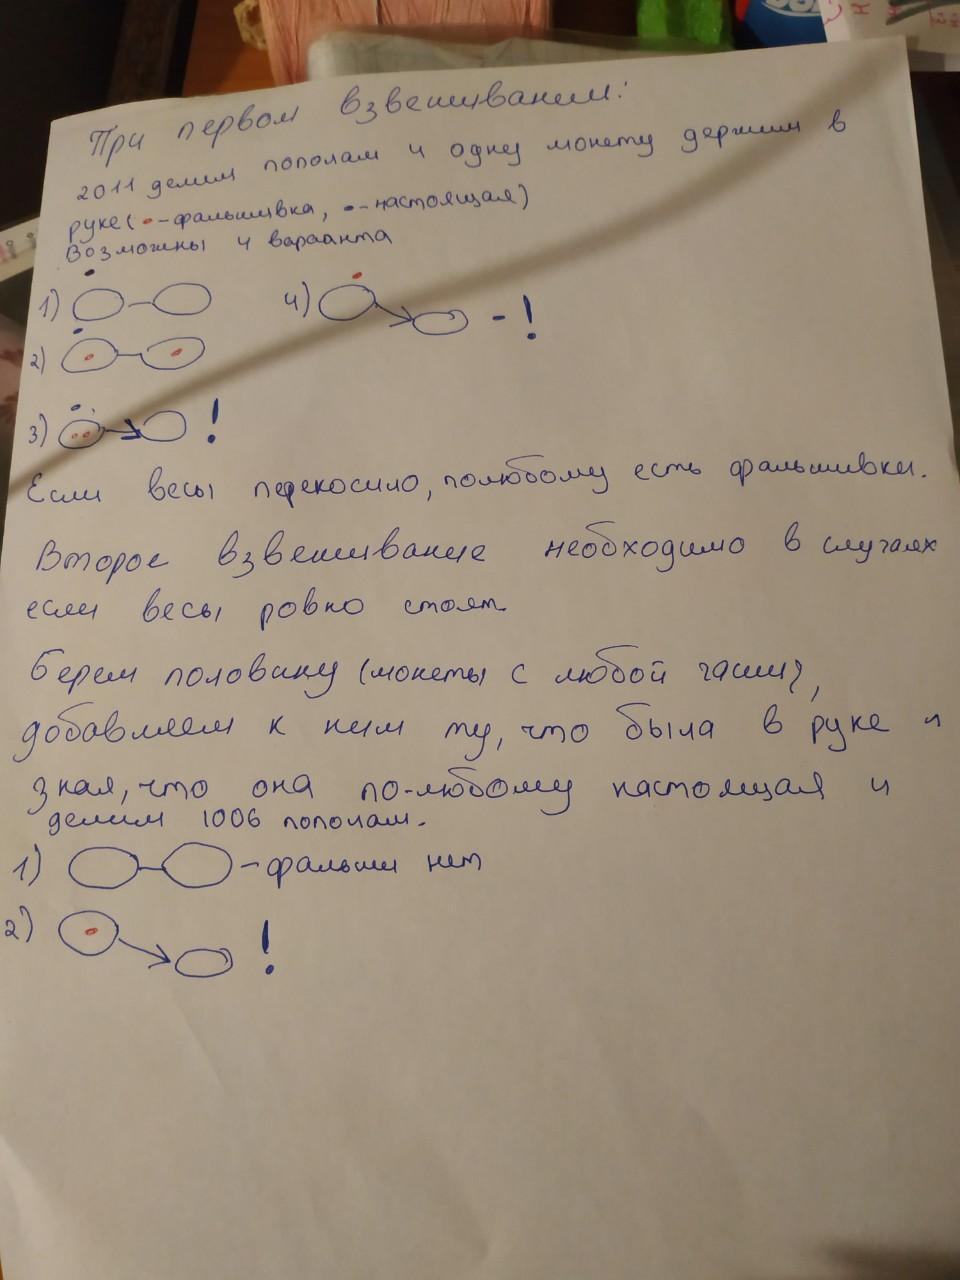 При первом взвешивании:
2011 делим пополам и одну монету держим в
руке( - фальшивка, - настоящая)
Возможны 4 варианта
1)
4) - !
2)
3) !
Если весы перекосило, полюбому есть фальшивки.
Второе взвешивание необходимо в случаях
если весы ровно стоят.
Берем половину (монеты с любой чаши),
добавляем к ним ту, что была в руке и
зная, что она по-любому настоящая и
делим 1006 пополам.
1) - фальши нет
2) !